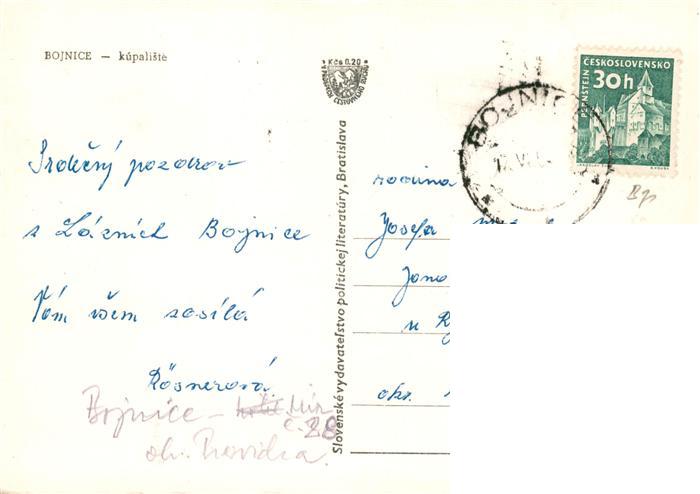 BOJNICE — kúpalište
Kčs 0.20
Srdečný pozdrav
z Lázních Bojnice
Vám všem zasílá
Rösnerová
Bojnice –
č. 28
Slovenské vydavateľstvo politickej literatúry, Bratislava
ČESKOSLOVENSKO
PERNŠTEJN
30h
BOJNICE
rodina
Josefa
u
okr.